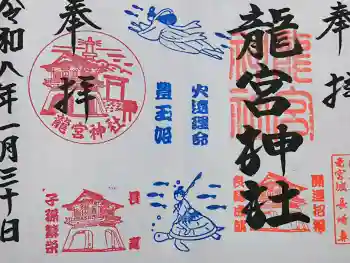 奉拝
龍宮神社
奉拝
令和八年一月三十日
龍宮神社
豊玉姫
火遠理命
子孫繁栄
開運招福
竜宮城
長崎鼻